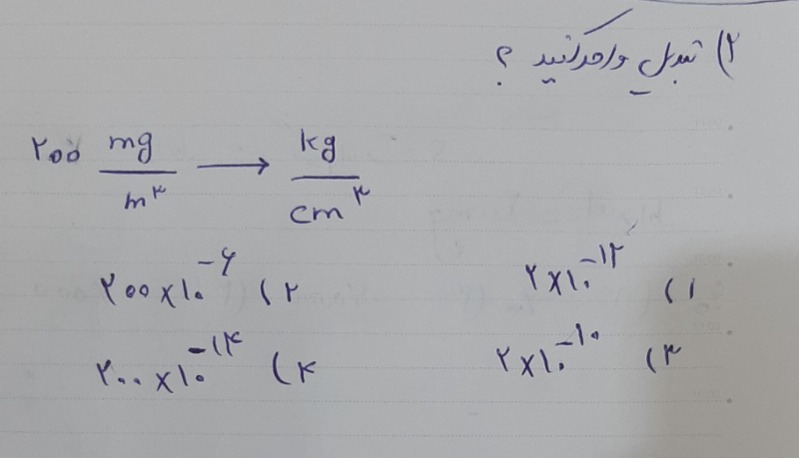 ۲) تبدیل واحد کنید ؟
۲۰۰ mg/m^۳ → kg/cm^۳
۱) ۲×۱۰^-۱۲ ۲) ۲۰۰×۱۰^-۶
۳) ۲×۱۰^-۱۰ ۴) ۲۰۰×۱۰^-۱۳